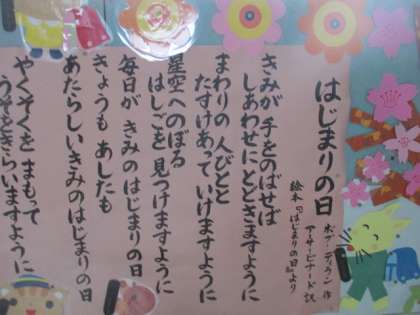 はじまりの日
ボブ・ディラン 作
アーサー・ビナード 訳
絵本『はじまりの日』より
きみが 手をのばせば
しあわせにとどきますように
まわりの 人びとと
たすけあって いけますように
星空へのぼる
はしごを 見つけますように
毎日が きみのはじまりの日
きょうも あしたも
あたらしいきみのはじまりの日
やくそくを まもって
うそをきらいますように